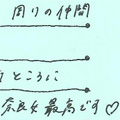 周りの仲間
ところに
奈良女最高です♡